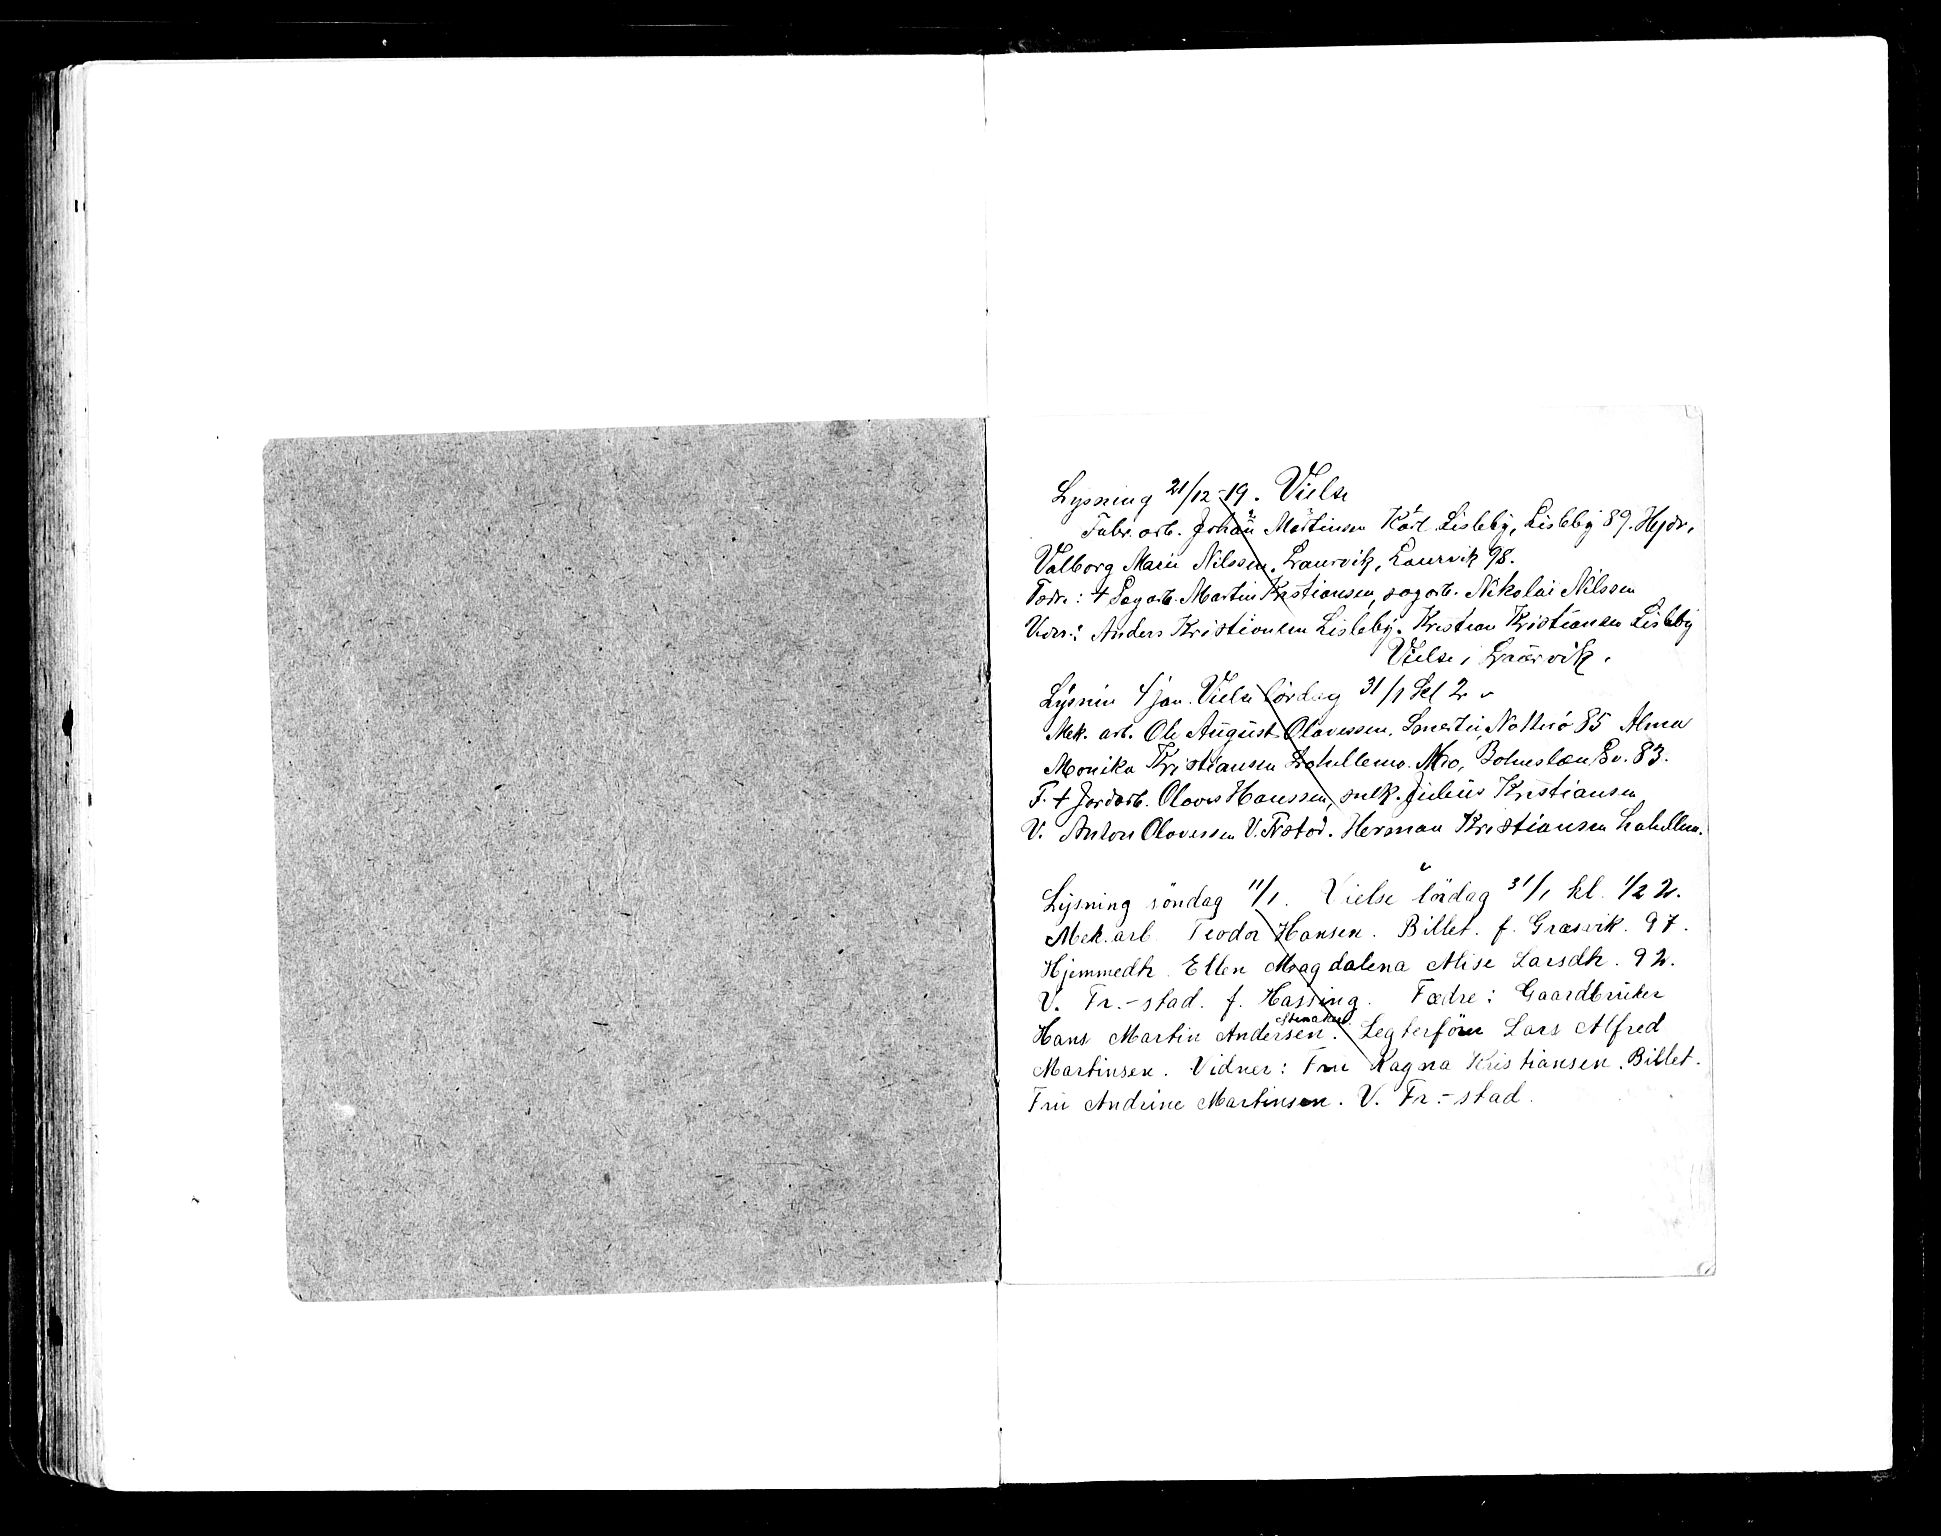 Lysning 21/12-19. Vielse
Fabr. arb. Johan Martinsen Karl Lisleby, Lisleby 89. Hjdr.
Valborg Marie Nilssen. Laurvik, Laurvik 98.
Fædre: † Sagarb. Martin Kristiansen, sagarb. Nikolai Nilssen
Vidn: Anders Kristiansen Lisleby. Kristian Kristiansen Lisleby
Vielse i Laurvik.
Lysnin 4 jan. Vielse lördag 31/1 kl 2
Mek. arb. Ole August Olavessen. Nötterö 85 Alma
Monika Kristiansen 83.
F. † Jordarb. Olaves Hanssen, Julius Kristiansen
V. Anton Olavessen V. Herman Kristiansen
Lysning söndag 11/1. Vielse lördag 31/1 kl. 1/2 2.
Mek. arb Teodor Hansen. Billet. f. Græsvik. 97.
Hjemmedtr. Ellen Magdalena Alise Larsdtr. 92.
V. Fr.-stad. f. Hassing. Fædre: Gaardbruker
Hans Martin Andersen. Legterför Lars Alfred
Martinsen. Vidner: Fru Ragna Kristiansen. Billet.
Fru Andrine Martinsen. V. Fr.-stad.